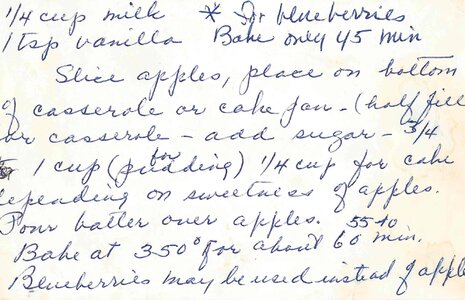 1/4 cup milk * For blueberries
1 tsp vanilla Bake only 45 min
Slice apples, place on bottom
of casserole or cake pan - (half fill
or casserole - add sugar - 3/4
1 cup (for pudding) 1/4 cup for cake
epending on sweetness of apples.
Pour batter over apples.
Bake at 350° for about 55 to 60 min.
Blueberries may be used instead of apple